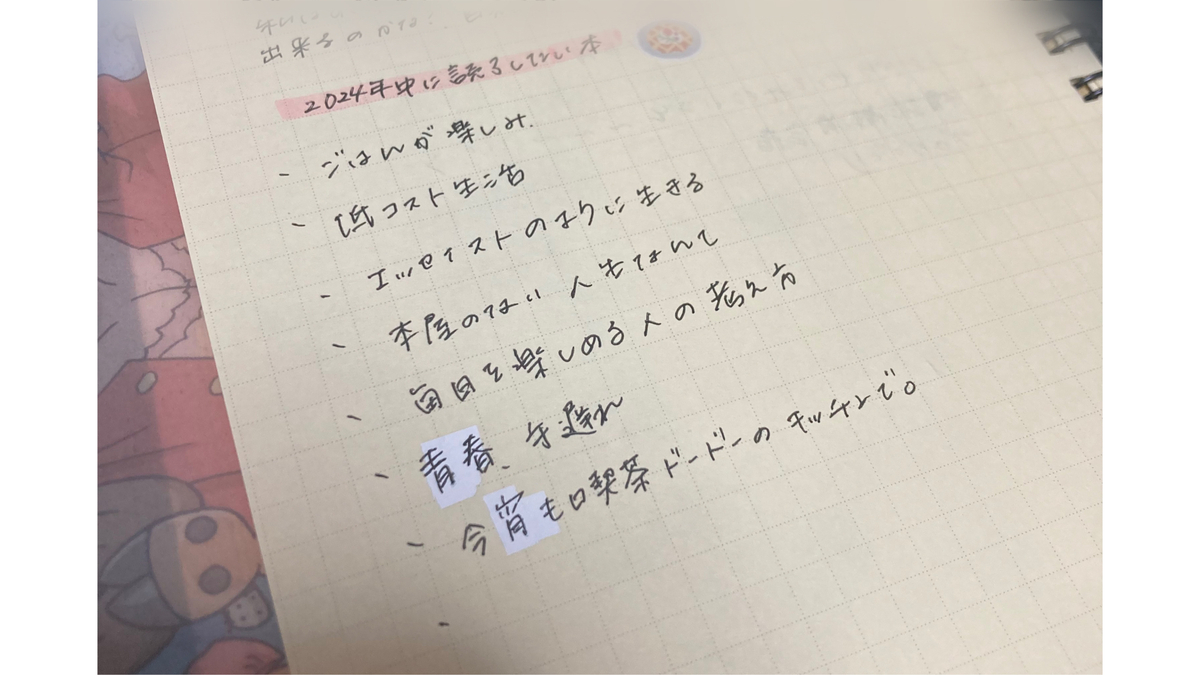 出来るのかな?
2024年中に読了したい本
- ごはんが楽しみ.
- 低コスト生活
- エッセイストのように生きる
- 本屋のない人生なんて
- 毎日を楽しめる人の考え方
- 青春、手遅れ
- 今宵も喫茶ドードーのキッチンで。
-